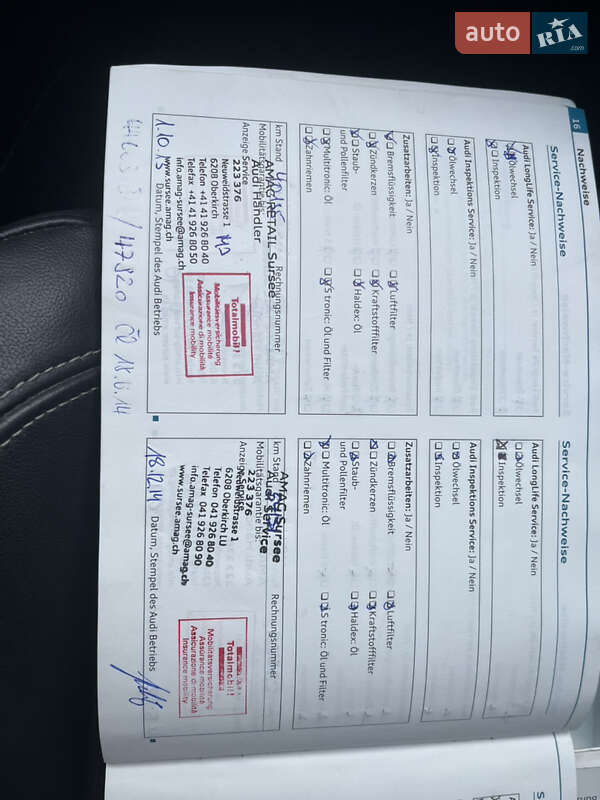 auto RIA.com
16
Nachweise
Service-Nachweise
Audi LongLife Service: Ja / Nein
Ölwechsel
Inspektion
Audi Inspektions Service: Ja / Nein
Ölwechsel
Inspektion
Zusatzarbeiten: Ja / Nein
Bremsflüssigkeit
Luftfilter
Zündkerzen
Kraftstofffilter
Staub-
und Pollenfilter
Haldex: Öl
Multitronic: Öl
S tronic: Öl und Filter
Zahnriemen
km Stand
Rechnungsnummer
Mobilitätsgarantie bis
Anzeige Service
AMAG RETAIL Sursee
Audi Händler
223 376
Neuweidstrasse 1
6208 Oberkirch
Telefon +41 41 926 80 40
Telefax +41 41 926 80 50
info.amag-sursee@amag.ch
www.sursee.amag.ch
Totalmobil!
Mobilitätsversicherung
Assurance mobilité
Assicurazione di mobilità
Insurance mobility
Datum, Stempel des Audi Betriebs
/47820
18.6.14
Service-Nachweise
Audi LongLife Service: Ja / Nein
Ölwechsel
Inspektion
Audi Inspektions Service: Ja / Nein
Ölwechsel
Inspektion
Zusatzarbeiten: Ja / Nein
Bremsflüssigkeit
Luftfilter
Zündkerzen
Kraftstofffilter
Staub-
und Pollenfilter
Haldex: Öl
Multitronic: Öl
S tronic: Öl und Filter
Zahnriemen
km Stand
Rechnungsnummer
Mobilitätsgarantie bis
AMAG Sursee
Audi Service
223 376
Neuweidstrasse 1
6208 Oberkirch LU
Telefon 041 926 80 40
Telefax 041 926 80 90
info.amag-sursee@amag.ch
www.sursee.amag.ch
Totalmobil!
Mobilitätsversicherung
Assurance mobilité
Assicurazione di mobilità
Insurance mobility
18.12.14
Datum, Stempel des Audi Betriebs